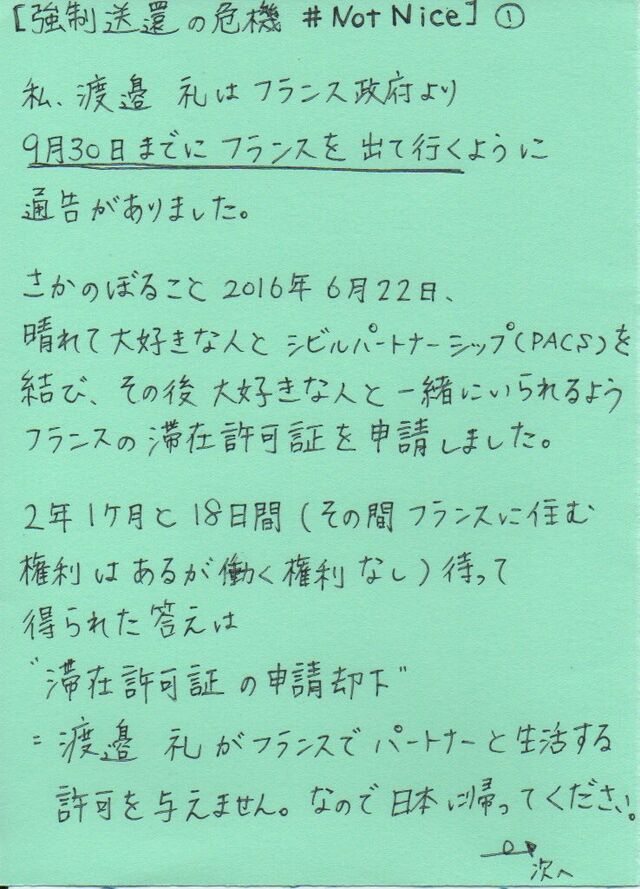 [強制送還の危機 #Not Nice] ①
私、渡邉 礼はフランス政府より
9月30日までにフランスを出て行くように
通告がありました。
さかのぼること 2016年6月22日、
晴れて大好きな人と シビルパートナーシップ(PACS)を
結び、その後 大好きな人と一緒にいられるよう
フランスの滞在許可証を申請しました。
2年1ケ月と18日間(その間フランスに住む
権利はあるが働く権利なし)待って
得られた答えは
"滞在許可証の申請却下"
=渡邉 礼がフランスでパートナーと生活する
許可を与えません。なので日本に帰ってください。
次へ